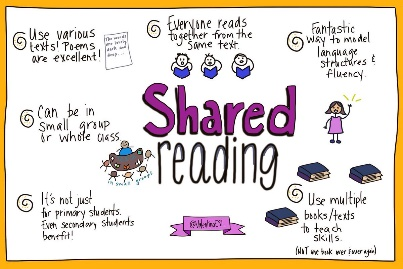 Use various
texts! Poems
are excellent!
The woods
are lovely
dark and
deep...
Everyone reads
together from the
same text.
Fantastic
way to model
language
structures &
fluency.
Can be in
small group
or whole class
Shared
reading
in small groups
It's not just
for primary students.
Even secondary students
benefit!
Use multiple
books/texts
to teach
skills.
(NOT one book over & over again)